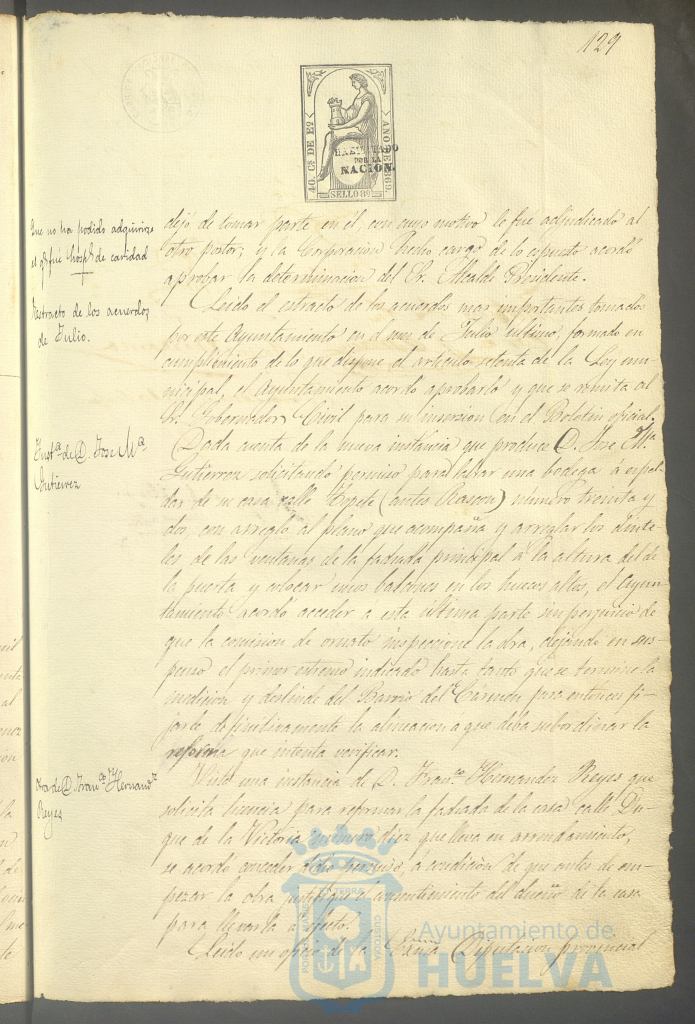 129
40. Cs DE Eo
AÑO DE 1869
HABILITADO
POR LA
NACION.
SELLO 8º
Que no ha podido adquirirse
el qe fué hospl de caridad
Estracto de los acuerdos
de Julio.
Insta de D. Jose Ma
Gutierrez
Otra de D. Franco Hernandz
Reyes
dejó de tomar parte en él, con cuyo motivo le fue adjudicado al
otro postor; y la Corporacion hecho cargo de lo espuesto acordó
aprobar la determinacion del Sr. Alcalde Presidente.
Leido el estracto de los acuerdos mas importantes tomados
por este Ayuntamiento en el mes de Julio ultimo, formado en
cumplimiento de lo que dispone el articulo setenta de la Ley mu-
nicipal, el Ayuntamiento acordó aprobarlo y que se remita al
Sr. Gobernador Civil para su insercion en el Boletin oficial.
Dada cuenta de la nueva instancia que produce D. Jose Ma
Gutierrez solicitando permiso para labrar una bodega á espal-
das de su casa calle Topete (antes Rascon) número treinta y
dos, con arreglo al plano que acompaña y arreglar los dinte-
les de las ventanas de la fachada principal á la altura del de
la puerta y colocar unos balcones en los huecos altos, el Ayun-
tamiento acordó acceder a esta ultima parte sin perjuicio de
que la comision de ornato inspeccione la obra, dejando en sus-
penso el primer estremo indicado hasta tanto que se termine la
medicion y deslinde del Barrio del Carmen para entonces fi-
jarle definitivamente la alineacion a que deba subordinar la
reforma que intenta verificar.
Vista una instancia de D. Franco Hernandez Reyes que
solicita licencia para reformar la fachada de la casa calle Du-
que de la Victoria número diez que lleva en arrendamiento,
se acordó conceder dicho permiso, a condicion de que antes de em-
pezar la obra justifique el consentimiento del dueño de la casa
para llevarla á efecto.
Leido un oficio de la Diputacion provincial
Ayuntamiento de
HUELVA